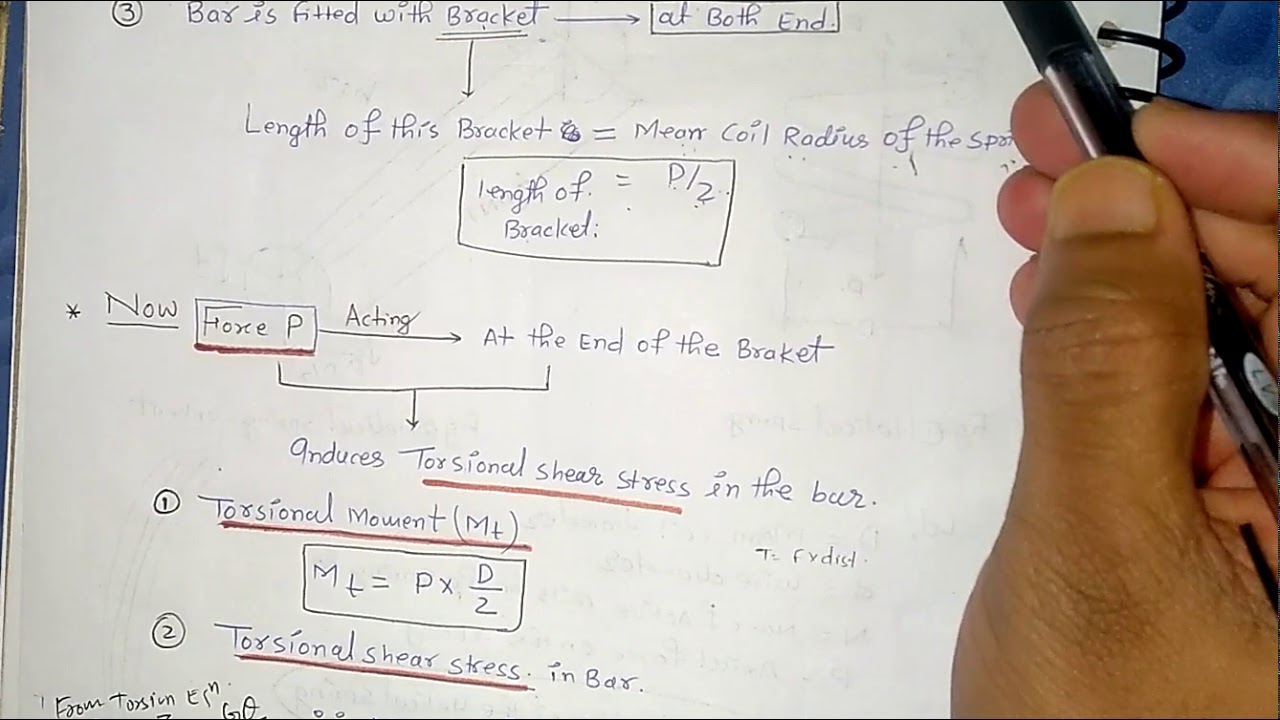 ③ Bar is fitted with Bracket → at Both End.
Length of this Bracket = Mean Coil Radius of the
Length of = D/2
Bracket:
* Now Force P Acting → At the End of the Braket
Induces Torsional shear stress in the bar.
① Torsional Moment (Mt)
T= F x dist.
Mt = P x D/2
② Torsional shear stress. in Bar.
From Torsion Eqn.
Gθ